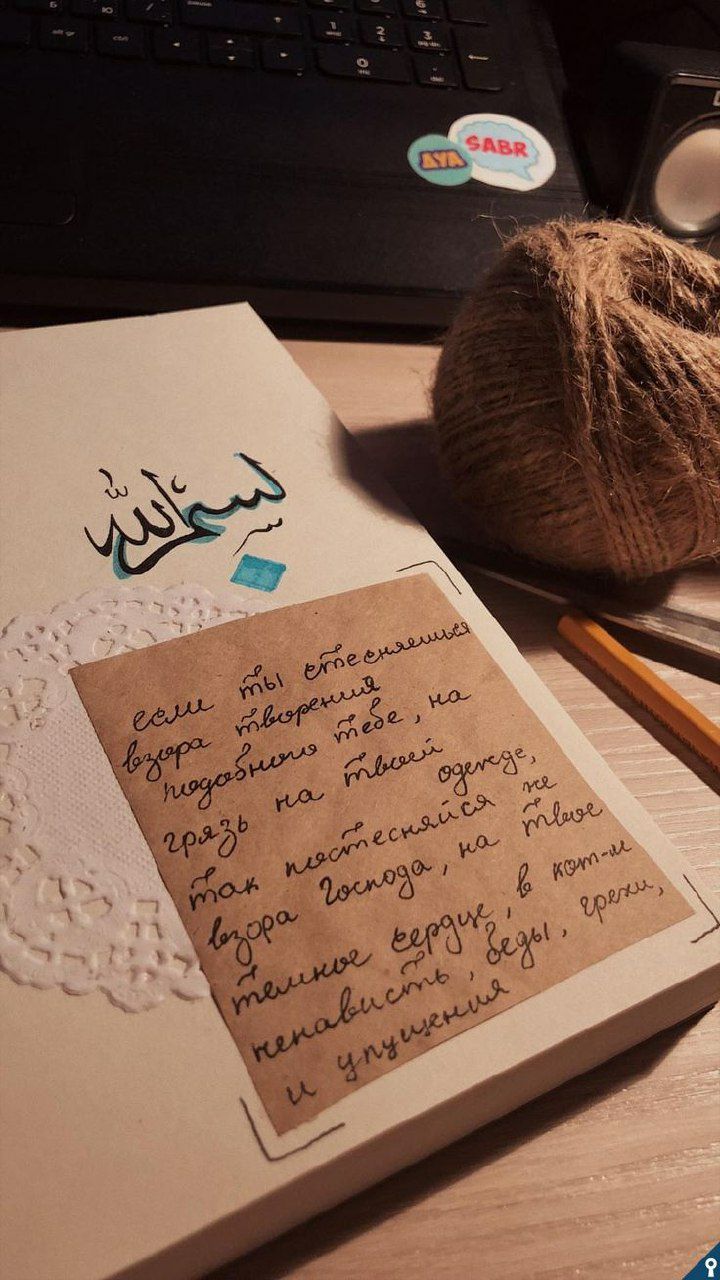 AYA
SABR
بسم الله
если ты стесняешься
взора творения
подобного тебе, на
грязь на твоей
одежде,
так постесняйся же
взора Господа, на твое
темное сердце, в кот-м
ненависть, беды, грехи,
и упущения